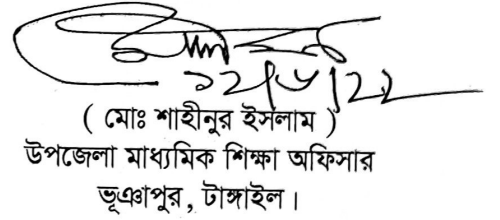 ( মোঃ শাহীনুর ইসলাম )
উপজেলা মাধ্যমিক শিক্ষা অফিসার
ভূঞাপুর, টাঙ্গাইল।